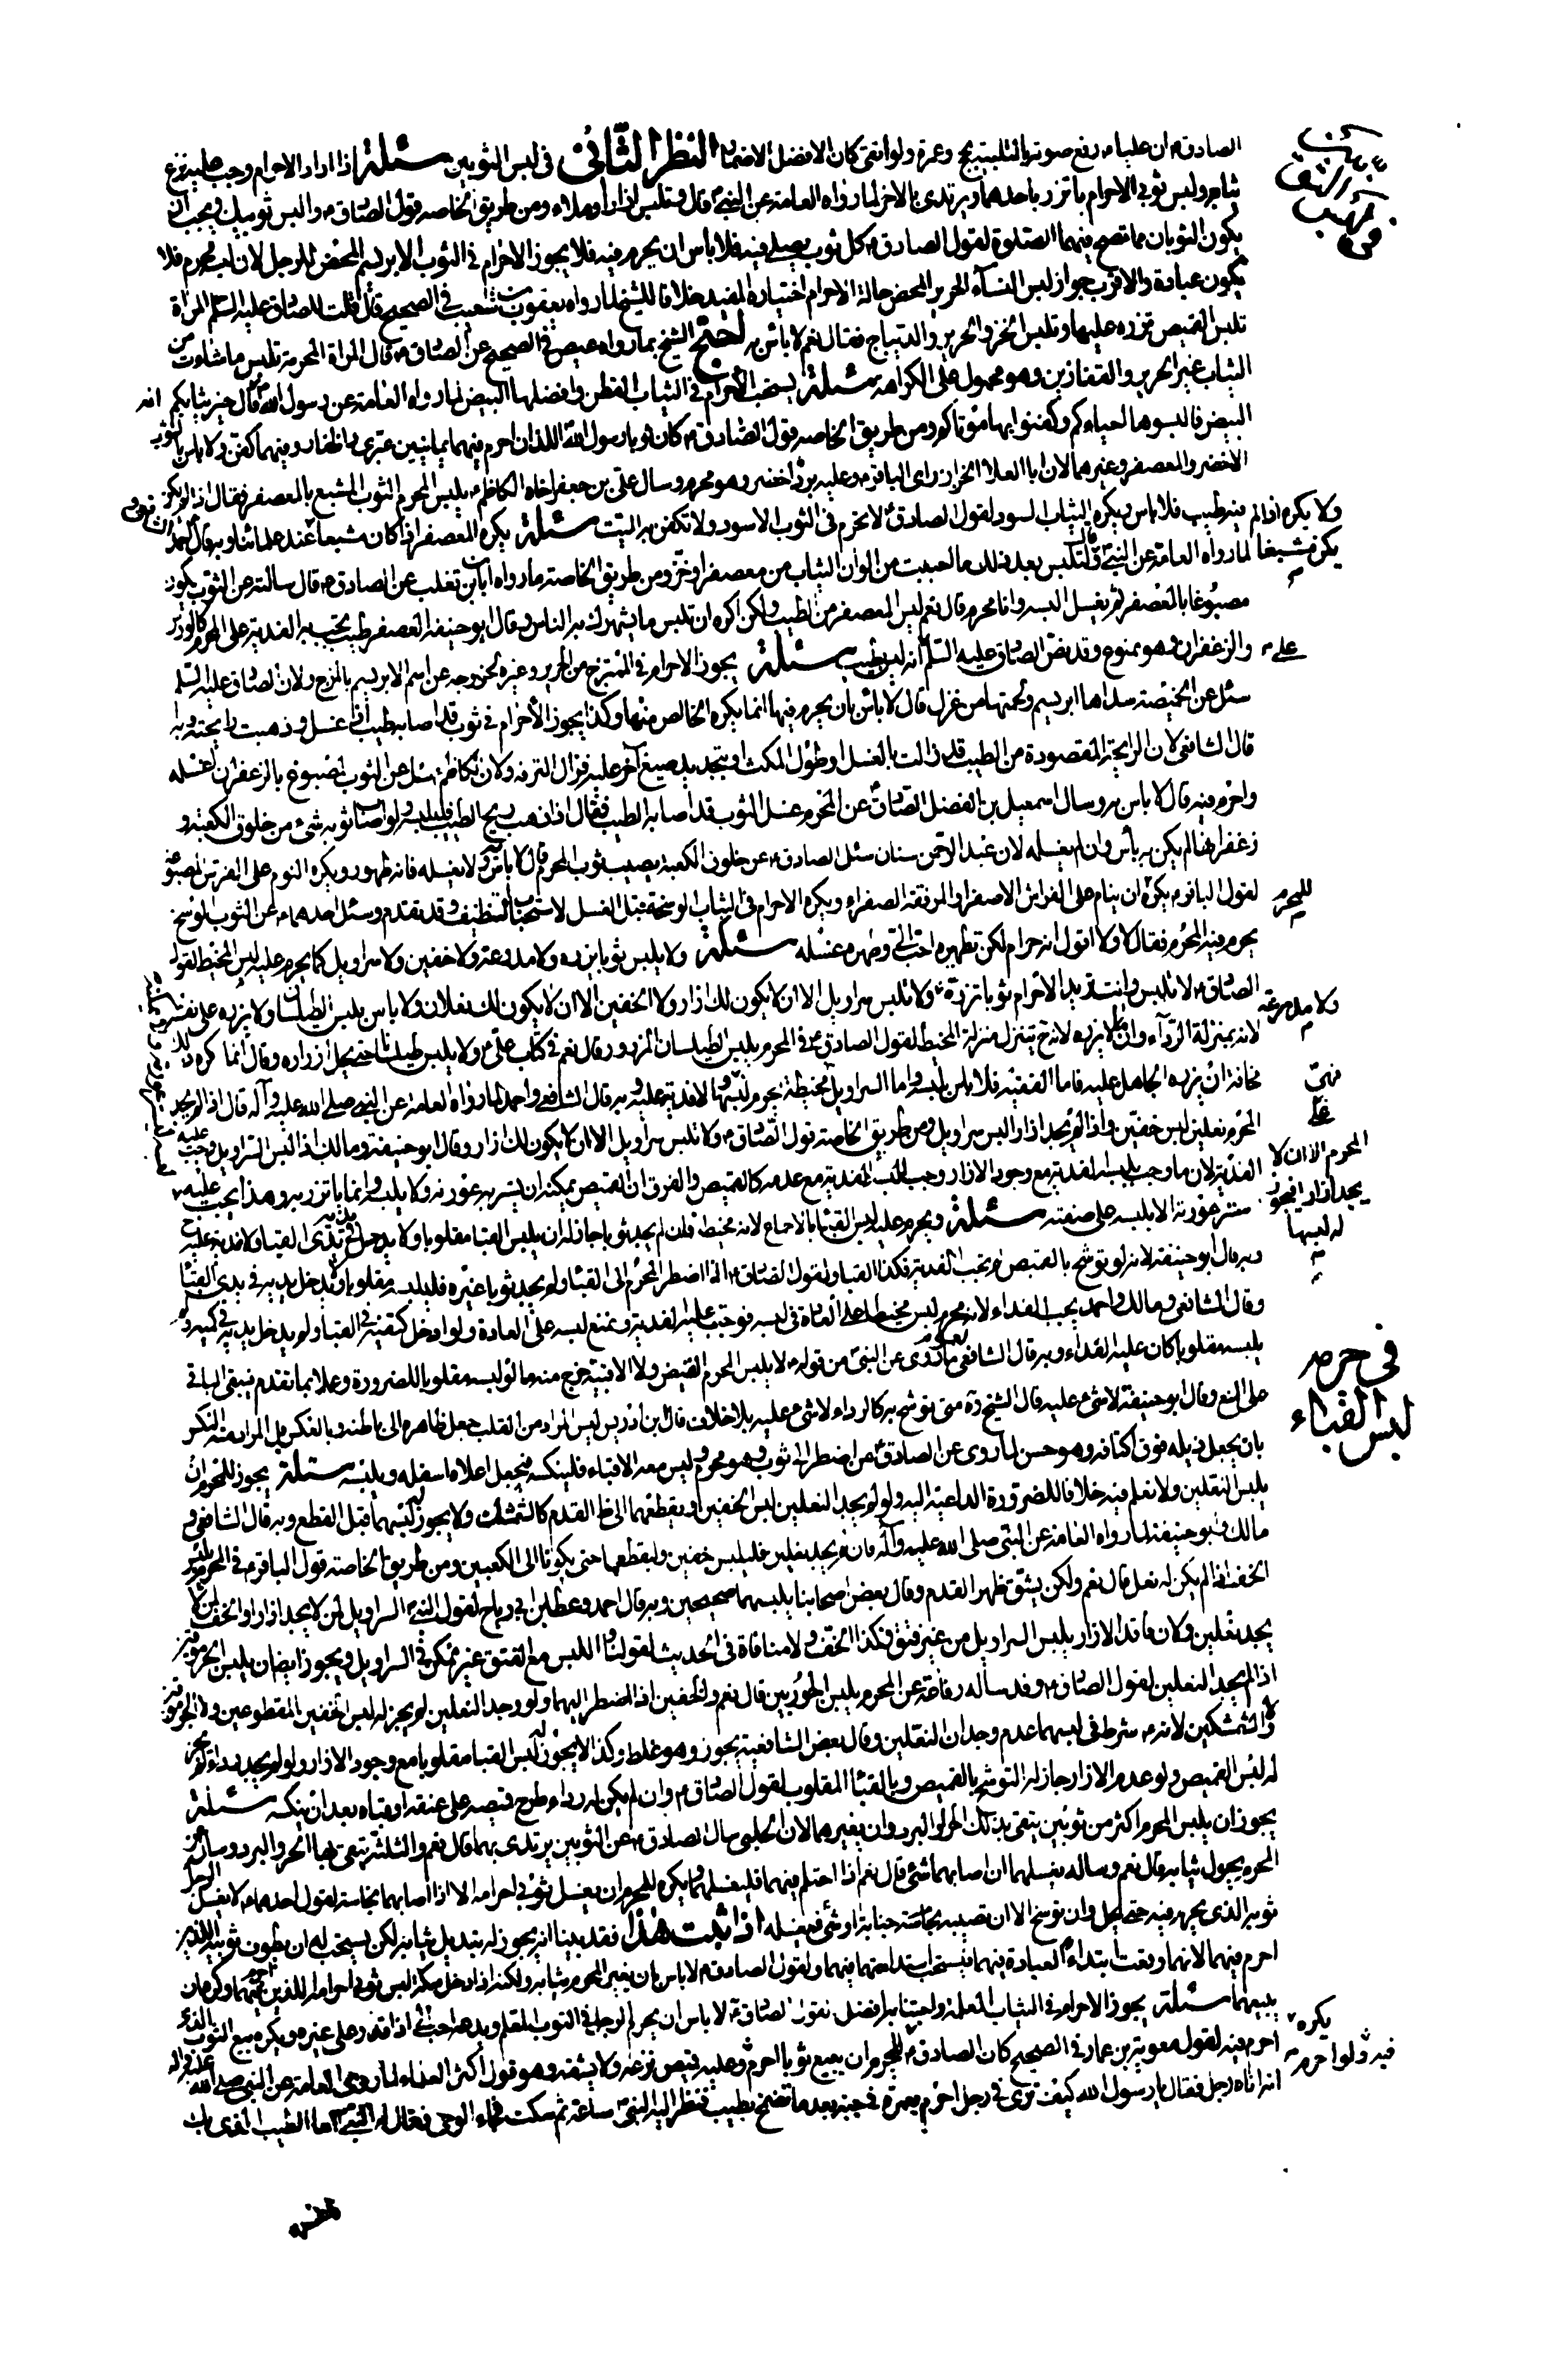 الصادق ع ان عليا ع رفع صوته بالتلبية بحج وعمرة ولو اتقى كان الافضل الاضمار النظر الثاني في لبس الثوبين مسئلة اذا اراد الاحرام وجب عليه نزع
ثيابه ولبس ثوبي الاحرام ياتزر باحدهما ويرتدى بالاخر لما رواه العامة عن النبي ص قال وتلبس ازارا ورداء ومن طريق الخاصه قول الصادق ع والبس ثوبيك ويجب ان
يكون الثوبان مما تصح فيهما الصلوة لقول الصادق ع كل ثوب يصلى فيه فلا باس ان يحرم فيه فلا يجوز الاحرام في الثوب الابريسم المحض للرجل لان لبسه محرم فلا
يكون عبادة والاقرب جواز لبس النساء الحرير المحض حالة الاحرام اختياره المفيد خلافا للشيخ لما رواه يعقوب بن شعيب في الصحيح قال قلت للصادق عليه السلم المراة
تلبس القميص تزره عليها وتلبس الخز والحرير والديباج فقال نعم لا باس به احتج الشيخ بما رواه عيص في الصحيح عن الصادق ع قال المراة المحرمة تلبس ما شاءت من
الثياب غير الحرير والقفازين وهو محمول على الكراهه مسئلة يستحب الاحرام في الثياب القطن وافضلها البيض لما رواه العامة عن رسول الله ص قال خير ثيابكم
البيض فالبسوها احياءكم وكفنوا بها موتاكم ومن طريق الخاصه قول الصادق ع كان ثوبا رسول الله اللذان احرم فيهما يمانيين عبرى واظفار وفيهما كفن ولا باس بالثوب
الاخضر والمعصفر وغيرهما لان ابا العلا الخراز راى الباقر ع وعليه برد اخضر وهو محرم وسال علي بن جعفر اخاه الكاظم ع يلبس المحرم الثوب المشبع بالمعصفر فقال اذا لم يكن
فيه طيب فلا باس ويكره الثياب السود لقول الصادق ع لا تحرم في الثوب الاسود ولا تكفن به الميت مسئلة يكره المعصفر اذا كان مشبعا عند علمائنا وبه قال احمد
لما رواه العامة عن النبي ص ولتلبس بعد ذلك ما احببت من الوان الثياب من معصفر او خز ومن طريق الخاصة ما رواه ابان بن تغلب عن الصادق ع قال سالته عن الثوب يكون
مصبوغا بالعصفر ثم يغسل البسه وانا محرم قال نعم ليس المعصفر من الطيب ولكن اكره ان تلبس ما يشهرك به الناس وقال ابو حنيفة العصفر طيب تجب به الفدية على المحرم كالورس
والزعفران وهو ممنوع وقد نص الصادق عليه السلم انه ليس بطيب مسئلة يجوز الاحرام في الممتزج من الحرير وغيره لخروجه عن اسم الابريسم بالمزج ولان الصادق عليه السلم
سئل عن الخميصة سداها ابريسم ولحمتها من غزل قال لا باس بان يحرم فيها انما يكره الخالص منها وكذا يجوز الاحرام في ثوب قد اصابه طيب اذا غسل وذهبت رايحته وبه
قال الشافعي لان الرايحة المقصودة من الطيب قد زالت بالغسل او طول المكث او بتجديد صبغ آخر عليه فزال الترفه ولان الكاظم ع سئل عن الثوب المصبوغ بالزعفران اغسله
واحرم فيه قال لا باس به وسال اسمعيل بن الفضل الصادق ع عن المحرم غسل الثوب قد اصابه الطيب فقال اذا ذهب ريح الطيب فليلبسه ولو اصاب ثوبه شيء من خلوق الكعبة و
زعفرانها لم يكن به باس وان لم يغسله لان عبد الرحمن بن سنان سئل الصادق ع عن خلوق الكعبة يصيب ثوب المحرم قال لا باس به ولا يغسله فانه طهور ويكره النوم على الفرش المصبوغة
لقول الباقر ع يكره ان ينام على الفراش الاصفر او المرفقة الصفراء ويكره الاحرام في الثياب الوسخة قبل الغسل لاستحباب التنظيف وقد تقدم وسئل احدهما ع عن الثوب الوسخ
يحرم فيه المحرم فقال لا ولا اقول انه حرام لكن تطهيره احب الى وطهره غسله مسئلة ولا يلبس ثوبا يزره ولا مدرعة ولا خفين ولا سراويل كما يحرم عليه لبس المخيط لقول
الصادق ع لا تلبس وانت تريد الاحرام ثوبا تزره ولا تلبس سراويل الا ان لا يكون لك ازار ولا الخفين الا ان لا يكون لك نعلان ولا باس بلبس الطيلسان ولا يزره على نفسه
لانه بمنزلة الرداء وانما لا يزره لانه ح يتنزل منزلة المخيط لقول الصادق ع في المحرم يلبس الطيلسان المزرور قال نعم في كتاب علي ع ولا يلبس طيلسانا حتى يحل ازراره وقال انما كره ذلك
مخافة ان يزره الجاهل عليه فاما الفقيه فلا باس بلبسه واما السراويل مخيطة يحرم لبسها ولا فدية عليه وبه قال الشافعي واحمد لما رواه العامة عن النبي صلى الله عليه وآله قال اذا لم يجد
المحرم نعلين لبس خفين واذا لم يجد ازارا لبس سراويل ومن طريق الخاصة قول الصادق ع ولا تلبس سراويل الا ان لا يكون لك ازار وقال ابو حنيفة ومالك اذا لبس السراويل وجب عليه
الفدية لان ما وجب بلبسه الفدية مع وجود الازار وجب للبسه الفدية مع عدمه كالقميص والفرق ان القميص يمكنه ان يستر به عورته ولا يلبسه وانما ياتزر به وهذا يجب عليه
ستر عورته الا بلبسه على صفته مسئلة ويحرم عليه لبس القباء بالاجماع لانه مخيط فان لم يجد ثوبا جاز له ان يلبس القبا مقلوبا ولا يدخل يديه في يدى القبا ولا فدية عليه ح
وبه قال ابو حنيفة لانه لو توشح بالقميص لم تجب الفدية فكذا القبا ولقول الصادق ع اذا اضطر المحرم الى القباء ولم يجد ثوبا غيره فليلبسه مقلوبا ولا يدخل يديه في يدى القبا
وقال الشافعي ومالك واحمد يجب الفداء لانه محرم لبس مخيطا على العادة في لبسه فوجبت عليه الفدية ونمنع لبسه على العادة ولو ادخل كتفيه في القبا ولم يدخل يديه في كميه ولم
يلبسه مقلوبا كان عليه الفداء وبه قال الشافعي لما روى عن النبي ص من قوله ع لا يلبس المحرم القميص ولا الاقبية خرج منه ما لو لبسه مقلوبا للضرورة وعملا بما تقدم فيبقى الباقي
على المنع وقال ابو حنيفة لا شيء عليه قال الشيخ ره متى توشح به كالرداء لا شيء عليه بلا خلاف قال ابن ادريس ليس المراد من القلب جعل ظاهره الى باطنه وبالعكس بل المراد منه النكس
بان يجعل ذيله فوق اكتافه وهو حسن لما روى عن الصادق ع من اضطر الى ثوب وهو محرم وليس معه الا قباء فلينكسه فيجعل اعلاه اسفله ويلبسه مسئلة يجوز للمحرم ان
يلبس النعلين ولا نعلم فيه خلافا للضرورة الداعية اليه ولو لم يجد النعلين لبس الخفين او يقطعهما الى ظهر القدم كالشمشك ولا يجوز لبسهما قبل القطع وبه قال الشافعي و
مالك وابو حنيفة لما رواه العامة عن النبي صلى الله عليه وآله فان لم يجد نعلين فليلبس خفين وليقطعهما حتى يكونا الى الكعبين ومن طريق الخاصة قول الباقر ع في المحرم يلبس
الخف اذا لم يكن له نعل قال نعم ولكن يشق ظهر القدم وقال بعض اصحابنا يلبسهما صحيحين وبه قال احمد وعطا بن ابي رباح لقول النبي ص السراويل لمن لا يجد ازارا والخف لمن لا
يجد نعلين ولان فاقد الازار يلبس السراويل من غير فتق فكذا الخف ولا منافاة في الحديث لقولنا واللبس مع الفتق غير ممكن في السراويل ويجوز ايضا ان يلبس الجرموقين
اذا لم يجد النعلين لقول الصادق ع وقد ساله رفاعة عن المحرم يلبس الجوربين قال نعم والخفين اذا اضطر اليهما ولو وجد النعلين لم يجز له لبس الخفين المقطوعين ولا الجرموقين
ولا الشمشكين لانه ع شرط في لبسهما عدم وجدان النعلين وقال بعض الشافعية يجوز وهو غلط وكذا لا يجوز له لبس القبا مقلوبا مع وجود الازار ولو لم يجد رداء لم يجز
له لبس القميص ولو عدم الازار جاز له التوشح بالقميص وبالقباء المقلوب لقول الصادق ع وان لم يكن له رداء طرح قميصه على عنقه او قباه بعد ان ينكسه مسئلة
يجوز ان يلبس المحرم اكثر من ثوبين يتقى بذلك الحر او البرد وان يغيرهما لان الحلبي سال الصادق ع عن الثوبين يرتدى بهما قال نعم والثلثة يتقى بها الحر والبرد وساله عن
المحرم يحول ثيابه قال نعم وساله يغسلهما ان اصابهما شيء قال نعم اذا احتلم فيهما فليغسلهما ويكره للمحرم ان يغسل ثوبي احرامه الا اذا اصابهما نجاسة لقول احدهما ع لا يغسل الرجل
ثوبه الذي يحرم فيه حتى يحل وان توسخ الا ان تصيبه نجاسة جنابة او شيء فيغسله اذا ثبت هذا فقد بينا انه يجوز له تبديل ثيابه لكن يستحب له ان يطوف في ثوبيه اللذين
احرم فيهما لانهما وقعت ابتداء العبادة فيهما فيستحب استدامتهما فيهما ولقول الصادق ع لا باس بان يغير المحرم ثيابه ولكنه اذا دخل مكة لبس ثوبي احرامه اللذين احرم فيهما وكره ان
يبيعهما مسئلة يجوز الاحرام في الثياب المعلمة واجتنابه افضل لقول الصادق ع لا باس ان يحرم الرجل في الثوب المعلم ويدعه احب الى اذا قدر على غيره ويكره بيع الثوب الذي
احرم فيه لقول معوية بن عمار في الصحيح كان الصادق ع للمحرم ان يبيع ثوبا احرم وعليه قميص نزعه ولا يشقه وهو قول اكثر العلماء لما روى العامة عن النبي صلى الله عليه واله
انه اتاه رجل فقال يا رسول الله كيف ترى في رجل احرم بعمرة في جبة بعد ما تضمخ بطيب فنظر اليه النبي ص ساعة ثم سكت فجاء الوحى فقال له النبي ص اما الطيب الذي بك
ولا يكره اذا لم
يكن مشبعا
على
للمحرم
ولا مدرعة
المحرم الا ان لا
يجد ازارا فيجوز
له لبسها
في حرمة
لبس القباء
يكره
فيه ولو احرم